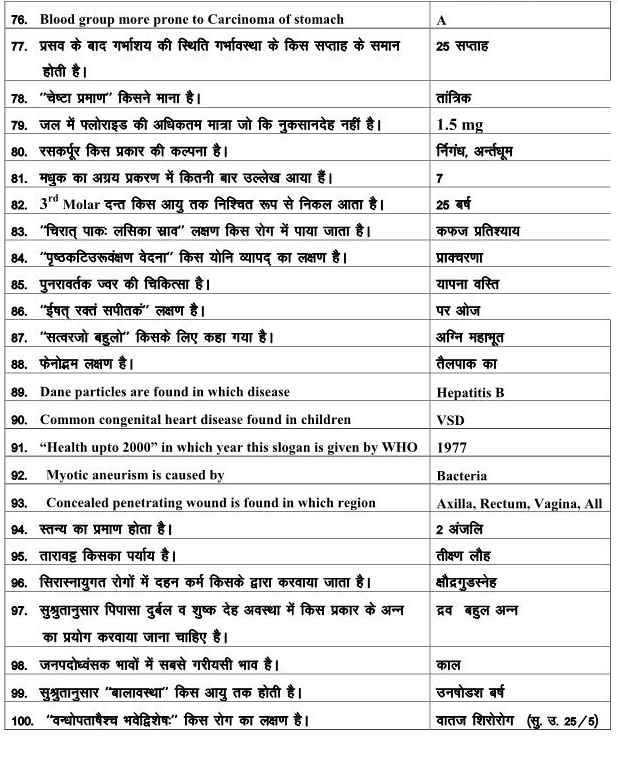 76. Blood group more prone to Carcinoma of stomach A
77. प्रसव के बाद गर्भाशय की स्थिति गर्भावस्था के किस सप्ताह के समान 25 सप्ताह
होती है।
78. "चेष्टा प्रमाण" किसने माना है। तांत्रिक
79. जल में फ्लोराइड की अधिकतम मात्रा जो कि नुकसानदेह नहीं है। 1.5 mg
80. रसकर्पूर किस प्रकार की कल्पना है। र्निगंध, अर्न्तधूम
81. मधुक का अग्रय प्रकरण में कितनी बार उल्लेख आया हैं। 7
82. 3rd Molar दन्त किस आयु तक निश्चित रूप से निकल आता है। 25 बर्ष
83. "चिरात् पाकः लसिका स्राव" लक्षण किस रोग में पाया जाता है। कफज प्रतिश्याय
84. "पृष्ठकटिउरूवंक्षण वेदना" किस योनि व्यापद् का लक्षण है। प्राक्चरणा
85. पुनरावर्तक ज्वर की चिकित्सा है। यापना वस्ति
86. "ईषत् रक्तं सपीतकं" लक्षण है। पर ओज
87. "सत्वरजो बहुलो" किसके लिए कहा गया है। अग्नि महाभूत
88. फेनोद्गम लक्षण है। तैलपाक का
89. Dane particles are found in which disease Hepatitis B
90. Common congenital heart disease found in children VSD
91. "Health upto 2000" in which year this slogan is given by WHO 1977
92. Myotic aneurism is caused by Bacteria
93. Concealed penetrating wound is found in which region Axilla, Rectum, Vagina, All
94. स्तन्य का प्रमाण होता है। 2 अंजलि
95. तारावट्ट किसका पर्याय है। तीक्ष्ण लौह
96. सिरास्नायुगत रोगों में दहन कर्म किसके द्वारा करवाया जाता है। क्षौद्रगुडस्नेह
97. सुश्रुतानुसार पिपासा दुर्बल व शुष्क देह अवस्था में किस प्रकार के अन्न द्रव बहुल अन्न
का प्रयोग करवाया जाना चाहिए है।
98. जनपदोध्वंसक भावों में सबसे गरीयसी भाव है। काल
99. सुश्रुतानुसार "बालावस्था" किस आयु तक होती है। उनषोडश बर्ष
100. "वन्धोपताषैश्च भवेद्विशेषः" किस रोग का लक्षण है। वातज शिरोरोग (सु. उ. 25/5)